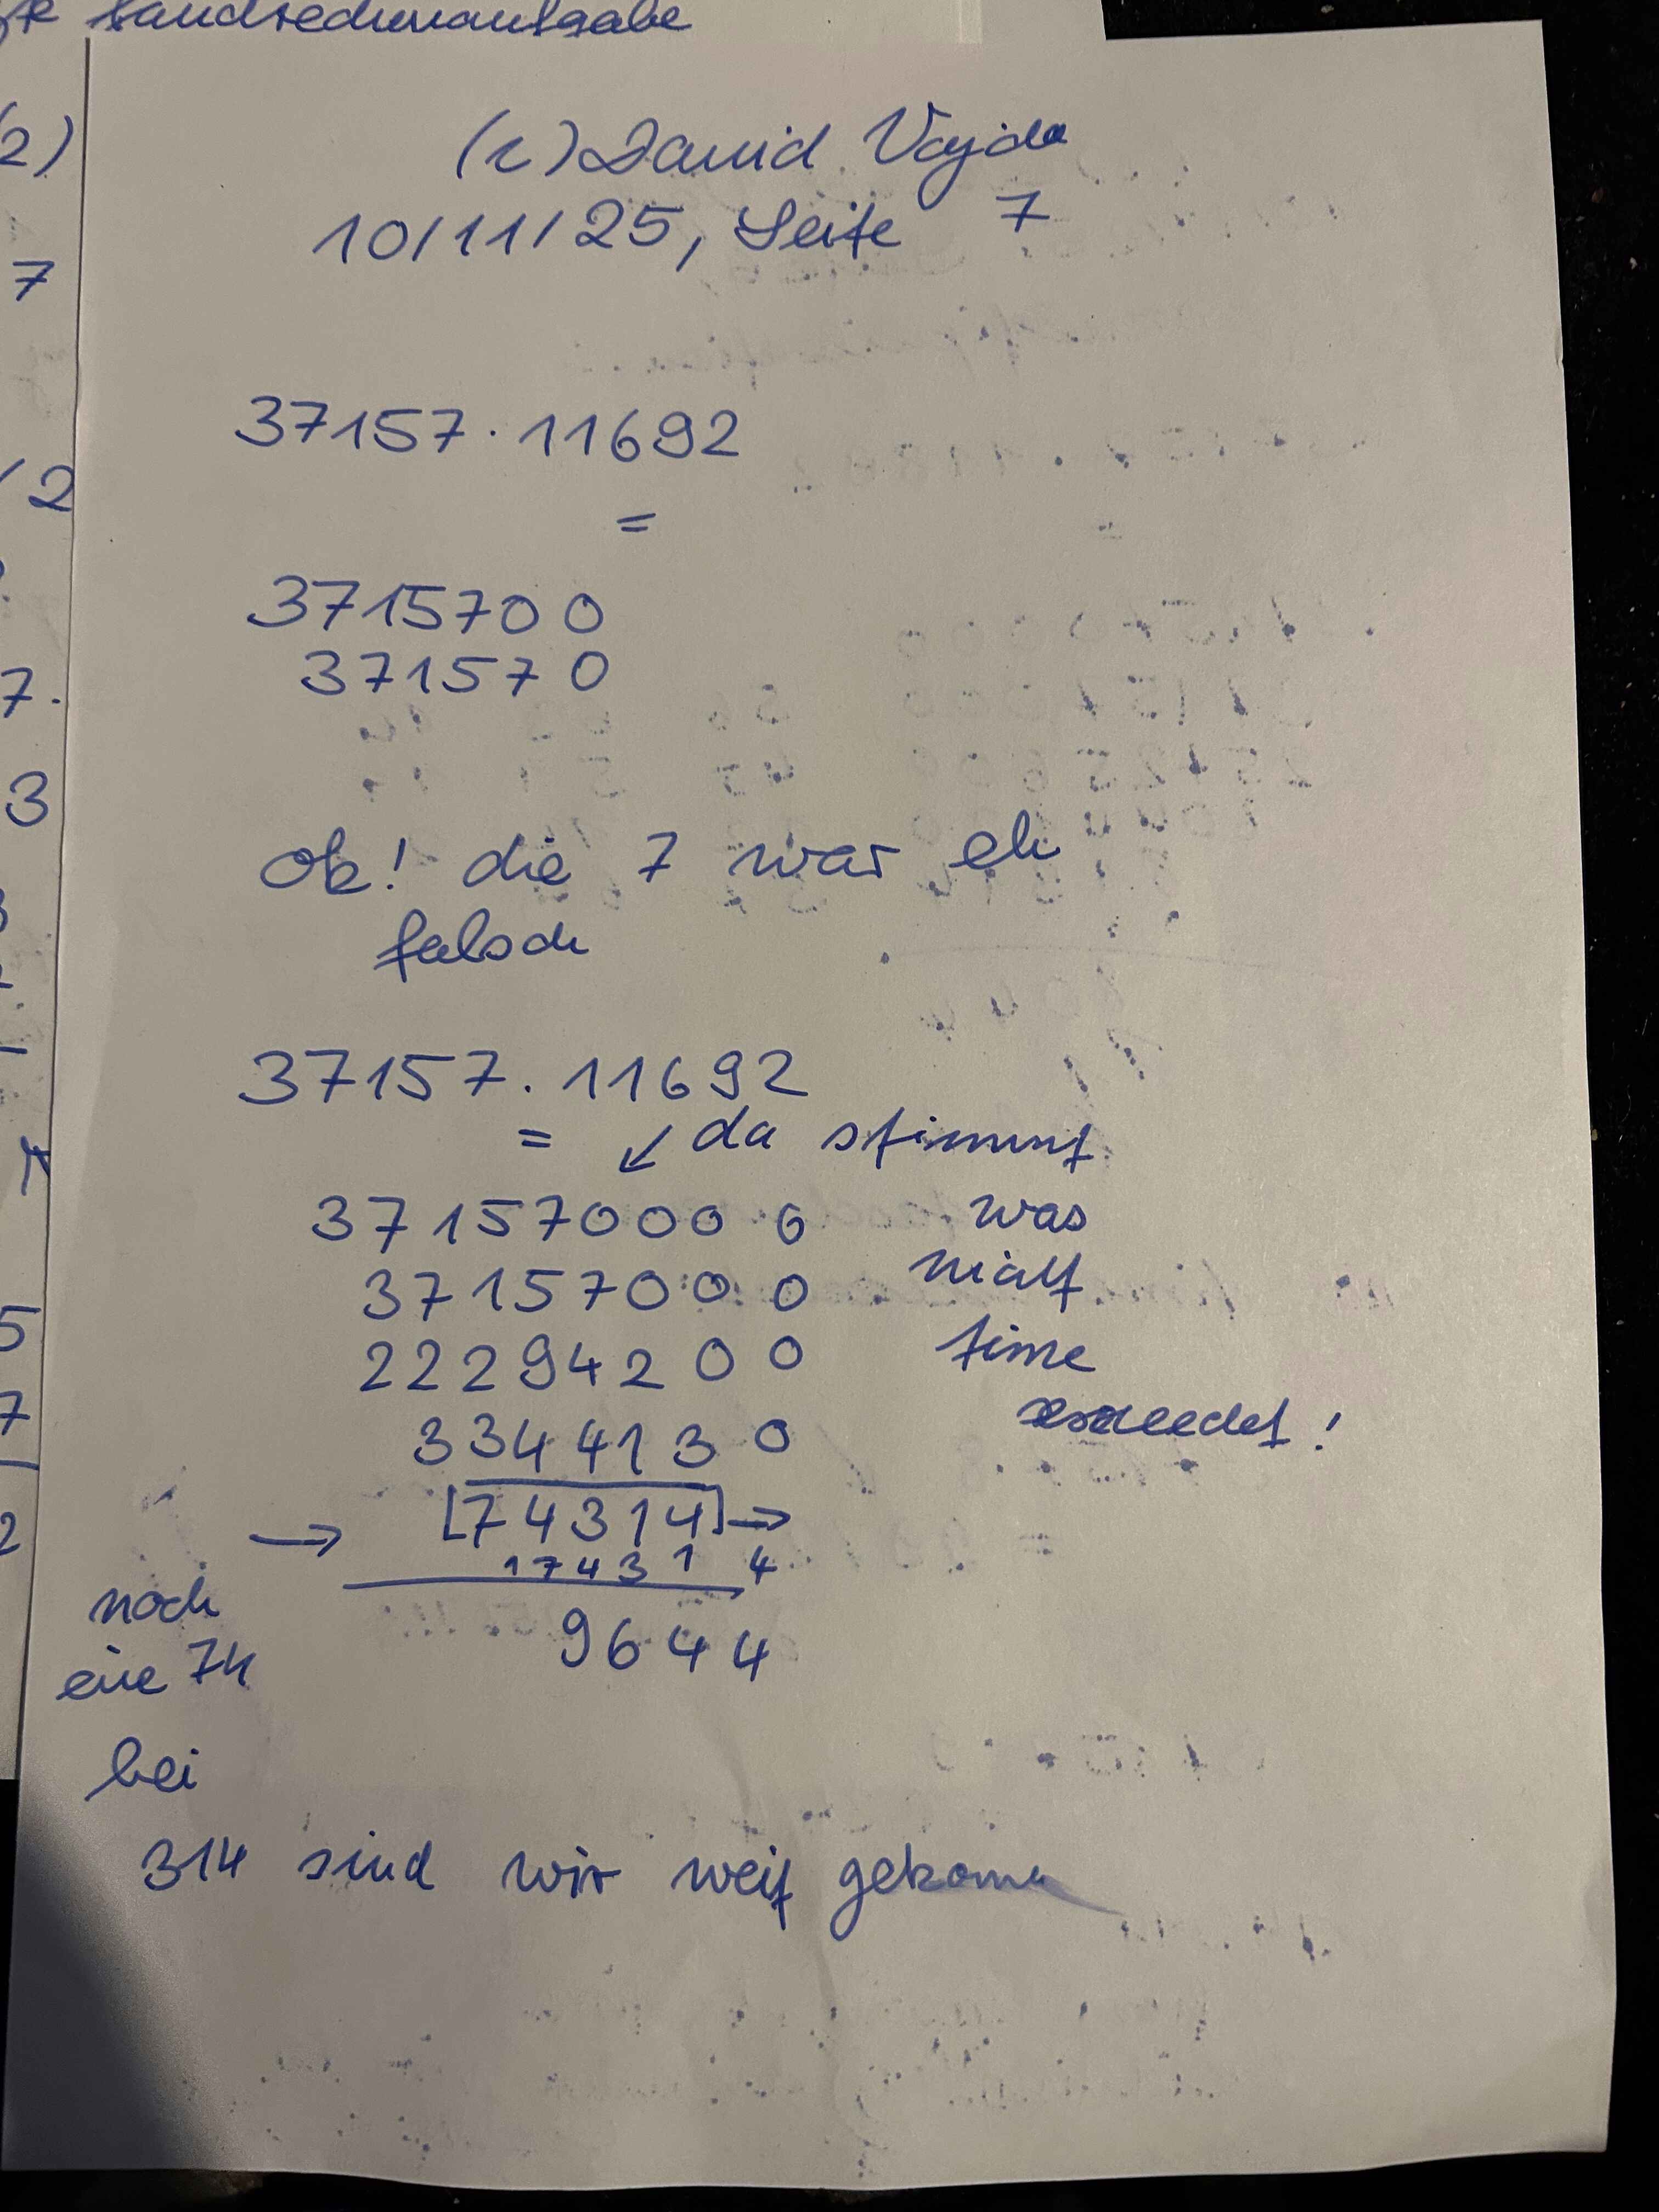 Handrechenaufgabe
(c) David Vajda
10/11/25, Seite 7
37157 · 11692
=
3715700
371570
Ok! die 7 war eh
falsch
37157 . 11692
= ↙ da stimmt
371570000 was
37157000 nicht
22294200 time
3344130 exceedet!
→ [74314] →
174314
noch
9644
eine 74
bei
314 sind wir weit gekomm
2)
7
/2
7.
3
5
7
2